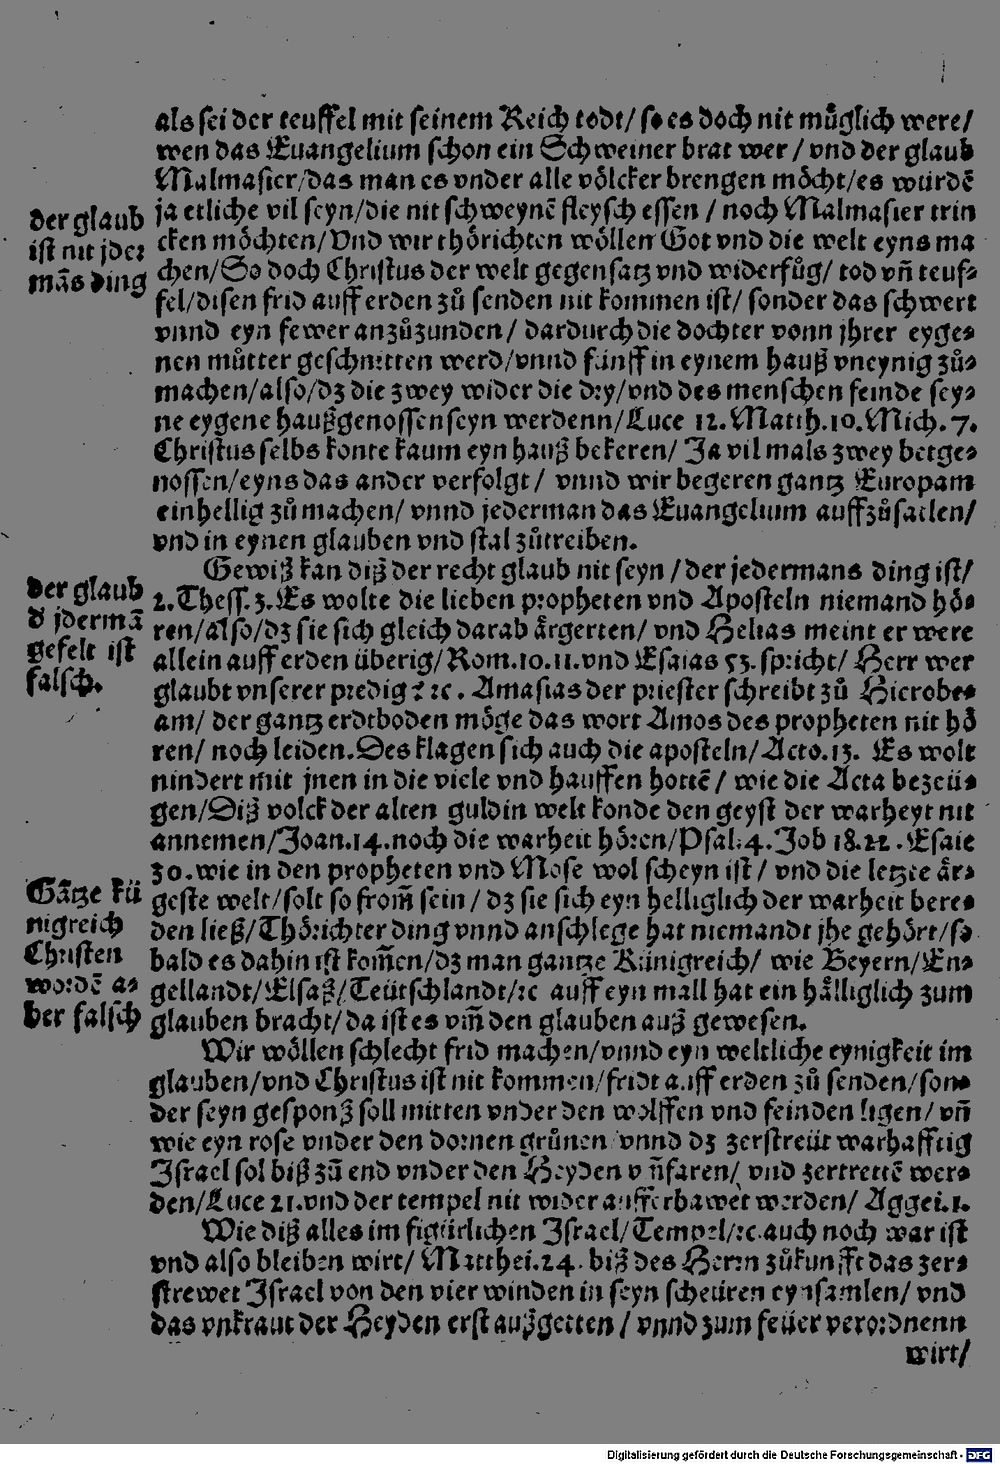 als sei der teuffel mit seinem Reich todt/ so es doch nit müglich were/
wen das Euangelium schon ein Schweiner brat wer / vnd der glaub
Malmasier/das man es vnder alle völcker brengen möcht/es würdē
ja etliche vil seyn/die nit schweynē fleysch essen / noch Malmasier trin
cken möchten/ Vnd wir thörichten wöllen Got vnd die welt eyns ma
chen/ So doch Christus der welt gegensatz vnd widerfůg/ tod vñ teuf⸗
fel/disen frid auff erden zů senden nit kommen ist/ sonder das schwert
vnnd eyn fewer anzůzunden/ dardurch die dochter vonn jhrer eyge⸗
nen můtter geschnitten werd/vnnd fünff in eynem hauß vneynig zů⸗
machen/also/dz die zwey wider die dry/vnd des menschen feinde sey⸗
ne eygene haußgenossen seyn werdenn/Luce 12. Matth.10. Mich. 7.
Christus selbs konte kaum eyn hauß bekeren/ Ja vil mals zwey betge⸗
nossen/eyns das ander verfolgt/ vnnd wir begeren gantz Europam
einhellig zů machen/ vnnd jederman das Euangelium auffzůsatlen/
vnd in eynen glauben vnd stal zůtreiben.
der glaub
ist nit jder
māns ding
Gewiß kan diß der recht glaub nit seyn / der jedermans ding ist/
2. Thess. 3. Es wolte die lieben propheten vnd Aposteln niemand hö⸗
ren/also/dz sie sich gleich darab ärgerten/ vnd Helias meint er were
allein auff erden überig/ Rom.10.11.vnd Esaias 53. spricht/ Herr wer
glaubt vnserer predig ꝛc. Amasias der priester schreibt zů Hierobe⸗
am/ der gantz erdtboden möge das wort Amos des propheten nit hö
ren/ noch leiden. Des klagen sich auch die aposteln/ Acto.13. Es wolt
nindert mit jnen in die viele vnd hauffen hottē/ wie die Acta bezeü⸗
gen/ Diß volck der alten guldin welt konde den geyst der warheyt nit
annemen/ Joan.14.noch die warheit hören/ Psal.4. Job 18.22. Esaie
30. wie in den propheten vnd Mose wol scheyn ist/ vnd die letzte är⸗
geste welt/ solt so from̃ sein / dz sie sich eyn helliglich der warheit bere⸗
den ließ/ Thörichter ding vnnd anschlege hat niemandt jhe gehört/ so
bald es dahin ist kom̃en/dz man gantze Künigreich/ wie Beyern/ En⸗
gellandt/ Elsaß/ Teütschlandt/ꝛc auff eyn mall hat ein hälliglich zum
glauben bracht/ da ist es vm̃ den glauben auß gewesen.
der glaub
d jdermā
gefelt ist
falsch.
Gātze kü
nigreich
Christen
wordē a⸗
ber falsch
Wir wöllen schlecht frid machen/vnnd eyn weltliche eynigkeit im
glauben/vnd Christus ist nit kommen/fridt auff erden zů senden/son⸗
der seyn gesponß soll mitten vnder den wolffen vnd feinden ligen/ vñ
wie eyn rose vnder den dornen grünen/ vnnd dz zerstreüt warhafftig
Israel sol biß zů end vnder den Heyden vm̃faren/ vnd zertrettē wer⸗
den/Luce 21.vnd der tempel nit wider aufferbawet werden/ Aggei.1.
Wie diß alles im figürlichen Israel/ Tempel/ꝛc.auch noch war ist
vnd also bleiben wirt/ Matthei.24. biß des Herrn zůkunfft das zer⸗
strewet Israel von den vier winden in seyn scheüren eynsamlen/ vnd
das vnkraut der Heyden erst außgetten / vnnd zum feüer verordnenn
wirt/
Digitalisierung gefördert durch die Deutsche Forschungsgemeinschaft - DFG